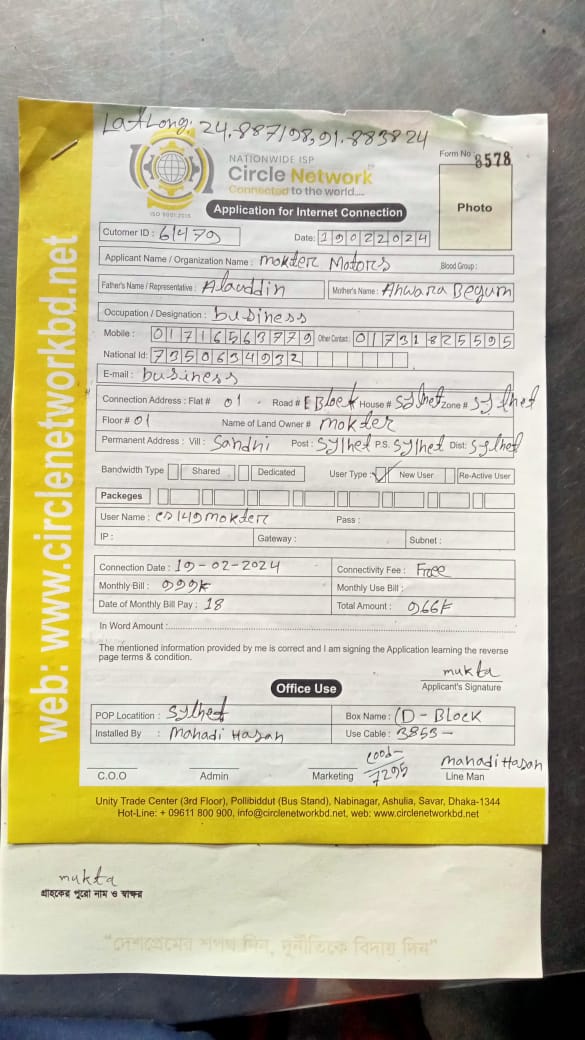 Lat Long: 24.887198, 91.883824
NATIONWIDE ISP
Circle Network
Connected to the world....
ISO 9001:2015
Form No : 8578
Photo
Application for Internet Connection
Cutomer ID : 61479
Date: 19022024
Applicant Name / Organization Name : Mokter Motors Blood Group :
Father's Name / Representative : Alauddin Mother's Name : Anwara Begum
Occupation / Designation : business
Mobile : 01716563779 Other Contact : 01731825595
National Id: 7350634932
E-mail : business
Connection Address : Flat # 01 Road # E Block House # Sylhet Zone # Sylhet
Floor # 01 Name of Land Owner # Mokter
Permanent Address : Vill : Sandhi Post : Sylhet P.S. Sylhet Dist: Sylhet
Bandwidth Type Shared Dedicated User Type : New User Re-Active User
Packeges
User Name : cs149mokter Pass :
IP : Gateway : Subnet :
Connection Date : 19-02-2024 Connectivity Fee : Free
Monthly Bill : 999k Monthly Use Bill :
Date of Monthly Bill Pay : 18 Total Amount : 966k
In Word Amount :
The mentioned information provided by me is correct and I am signing the Application learning the reverse
page terms & condition.
mukta
Applicant's Signature
Office Use
POP Locatition : Sylhet Box Name : D - Block
Installed By : Mahadi Hasan Use Cable : 3853 -
7295
mahadi Hasan
C.O.O Admin Marketing Line Man
Unity Trade Center (3rd Floor), Pollibiddut (Bus Stand), Nabinagar, Ashulia, Savar, Dhaka-1344
Hot-Line: + 09611 800 900, info@circlenetworkbd.net, web: www.circlenetworkbd.net
web: www.circlenetworkbd.net
mukta
গ্রাহকের পুরো নাম ও স্বাক্ষর
“দেশপ্রেমের শপথ নিন, দুর্নীতিকে বিদায় দিন”